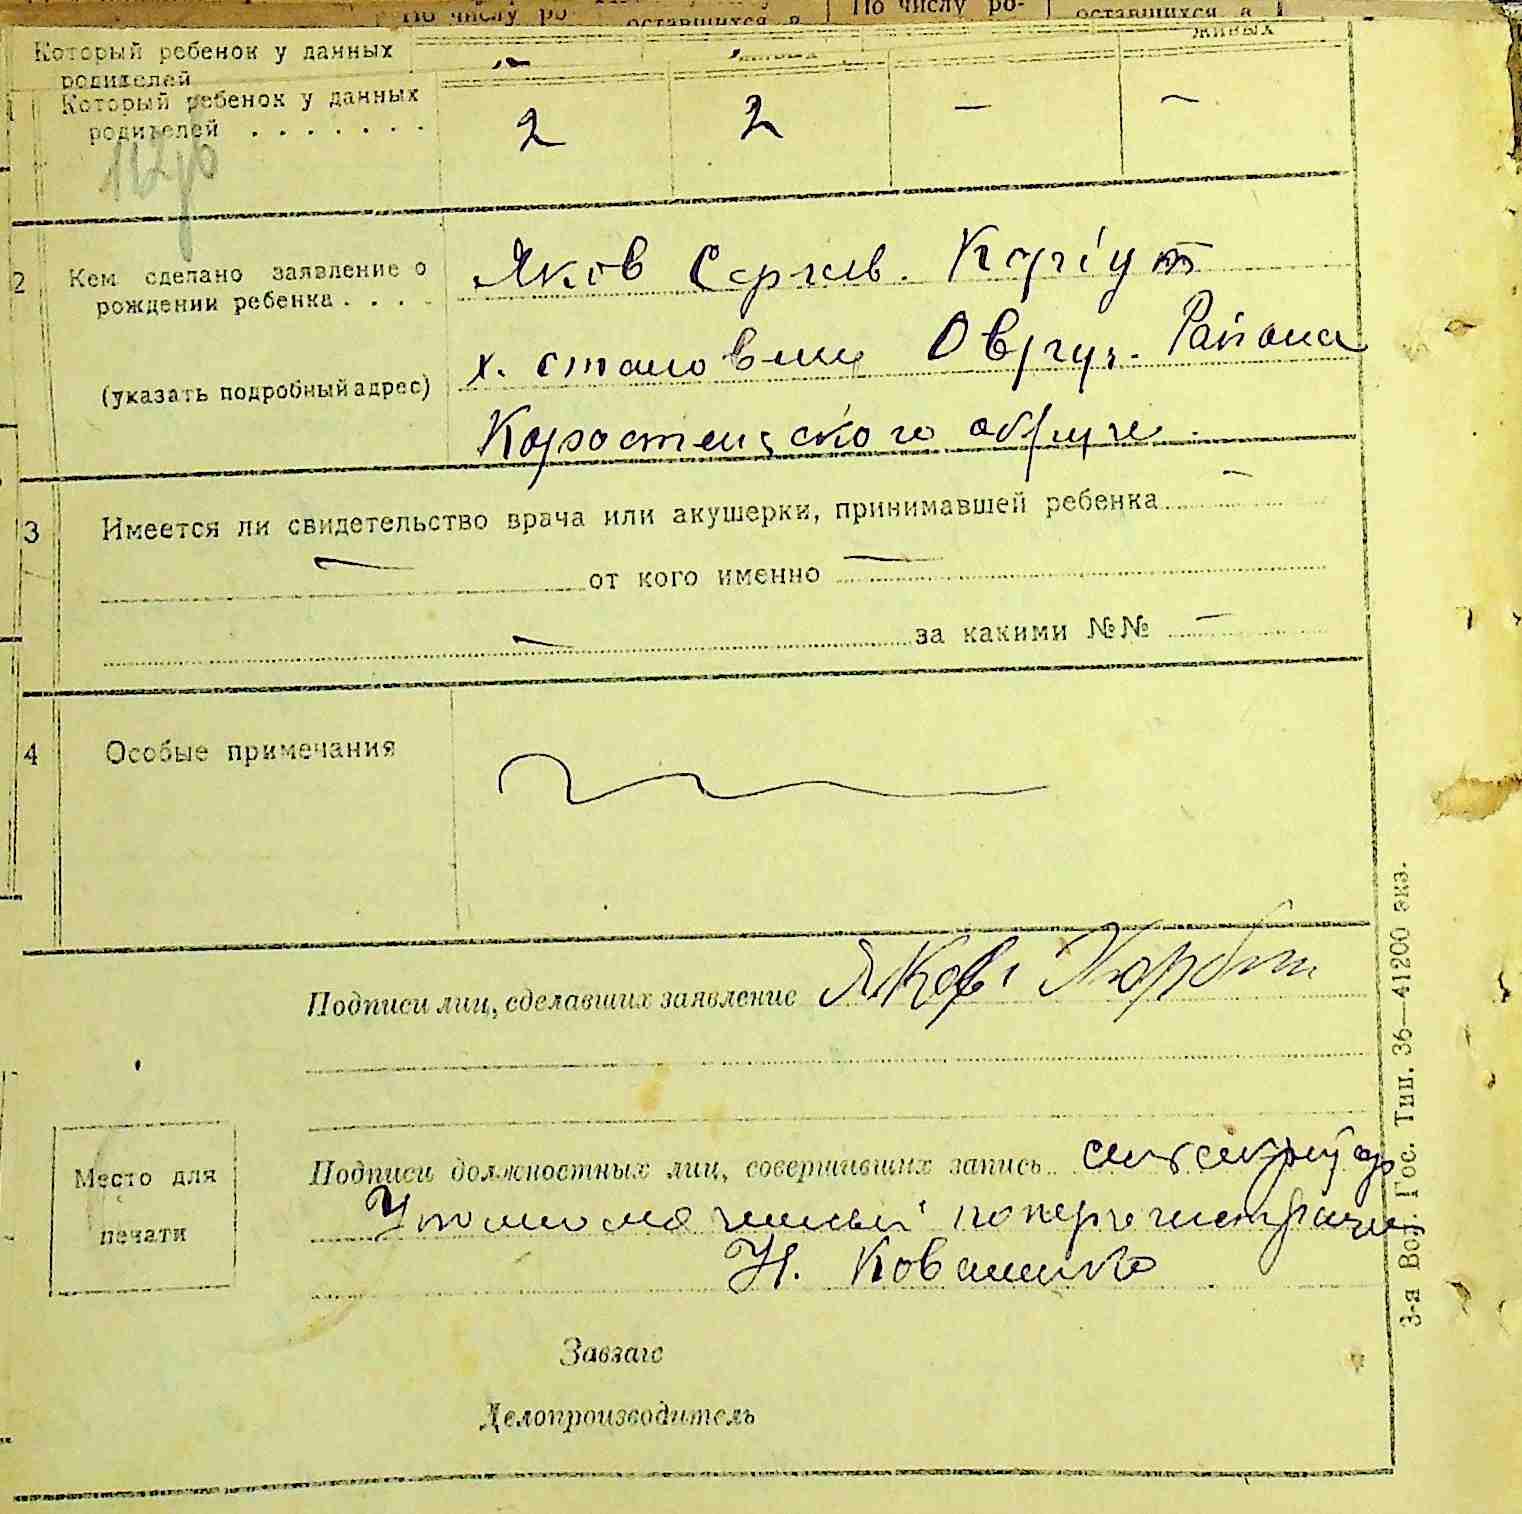 По числу ро- оставшихся в По числу ро- оставшихся в
живых
Который ребенок у данных
родителей
Который ребенок у данных
родителей . . . . . . . 2 2 — —
2 Кем сделано заявление о
рождении ребенка . . . .
Яков Сергив.
(указать подробный адрес)
х. Овруч. Района
3 Имеется ли свидетельство врача или акушерки, принимавшей ребенка —
— от кого именно —
— за какими №№ —
4 Особые примечания
Подписи лиц, сделавших заявление Яков
Подписи должностных лиц, совершивших запись
Н. Коваленко
Место для
печати
Завзагс
Делопроизводитель
3-я Вол. Гос. Тип. 36—41200 экз.